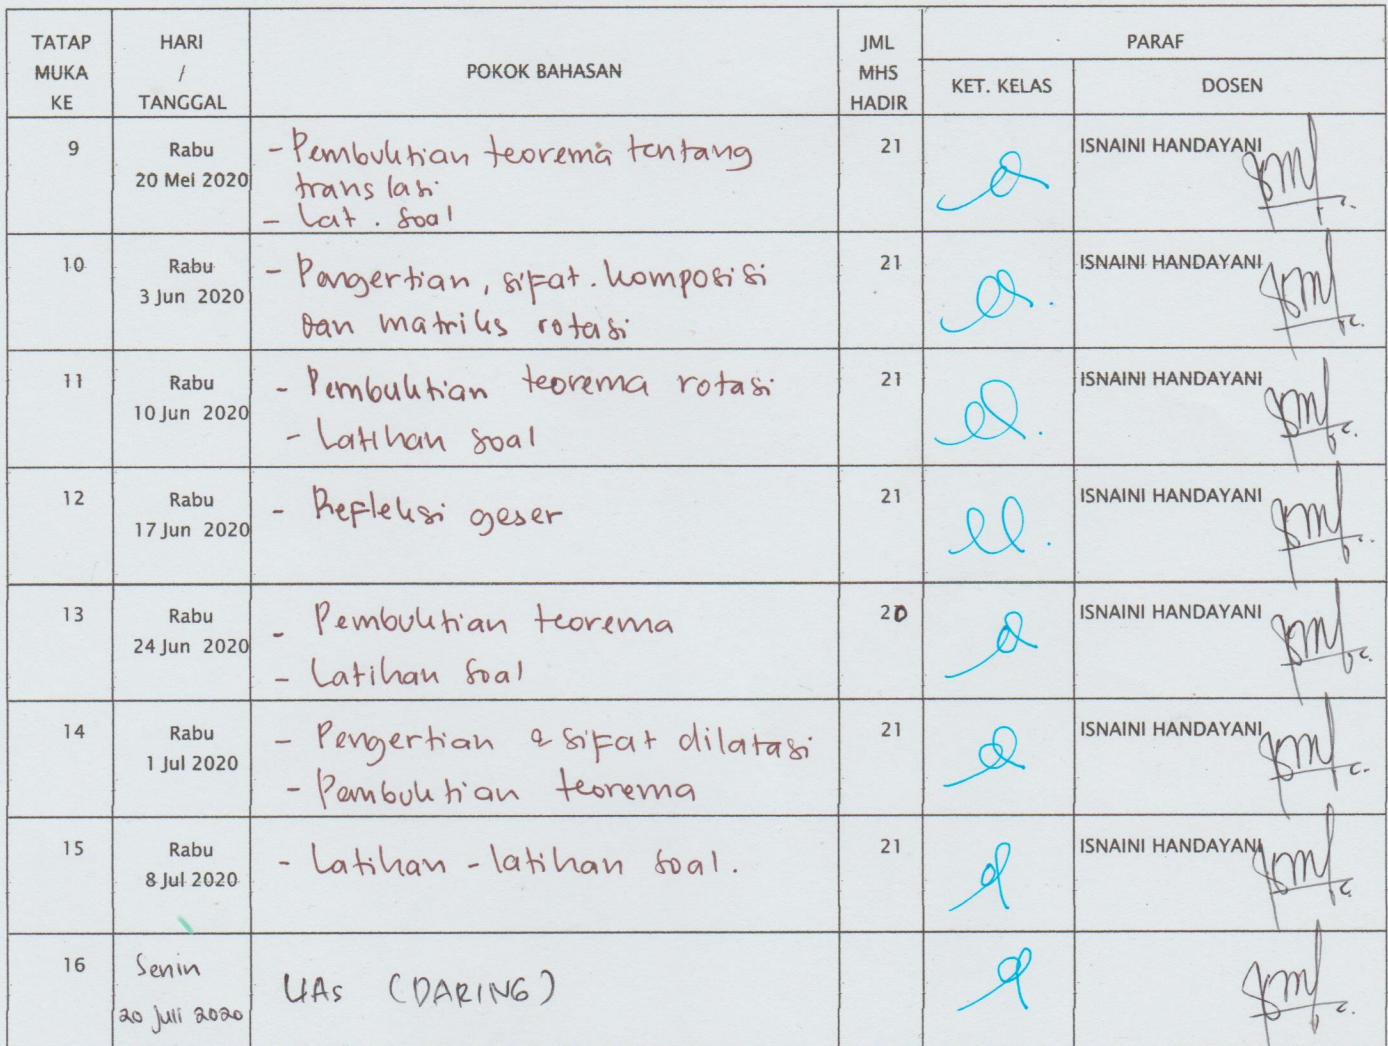 TATAP MUKA KE
HARI / TANGGAL
POKOK BAHASAN
JML MHS HADIR
PARAF
KET. KELAS
DOSEN
9
Rabu
20 Mei 2020
- Pembuktian teorema tentang
translasi
- Lat. soal
21
ISNAINI HANDAYANI
10
Rabu
3 Jun 2020
- Pengertian, sifat. komposisi
dan matriks rotasi
21
ISNAINI HANDAYANI
11
Rabu
10 Jun 2020
- Pembuktian teorema rotasi
- Latihan soal
21
ISNAINI HANDAYANI
12
Rabu
17 Jun 2020
- Refleksi geser
21
ISNAINI HANDAYANI
13
Rabu
24 Jun 2020
- Pembuktian teorema
- Latihan soal
20
ISNAINI HANDAYANI
14
Rabu
1 Jul 2020
- Pengertian & sifat dilatasi
- Pembuktian teorema
21
ISNAINI HANDAYANI
15
Rabu
8 Jul 2020
- Latihan - latihan soal.
21
ISNAINI HANDAYANI
16
Senin
20 Juli 2020
UAS (DARING)